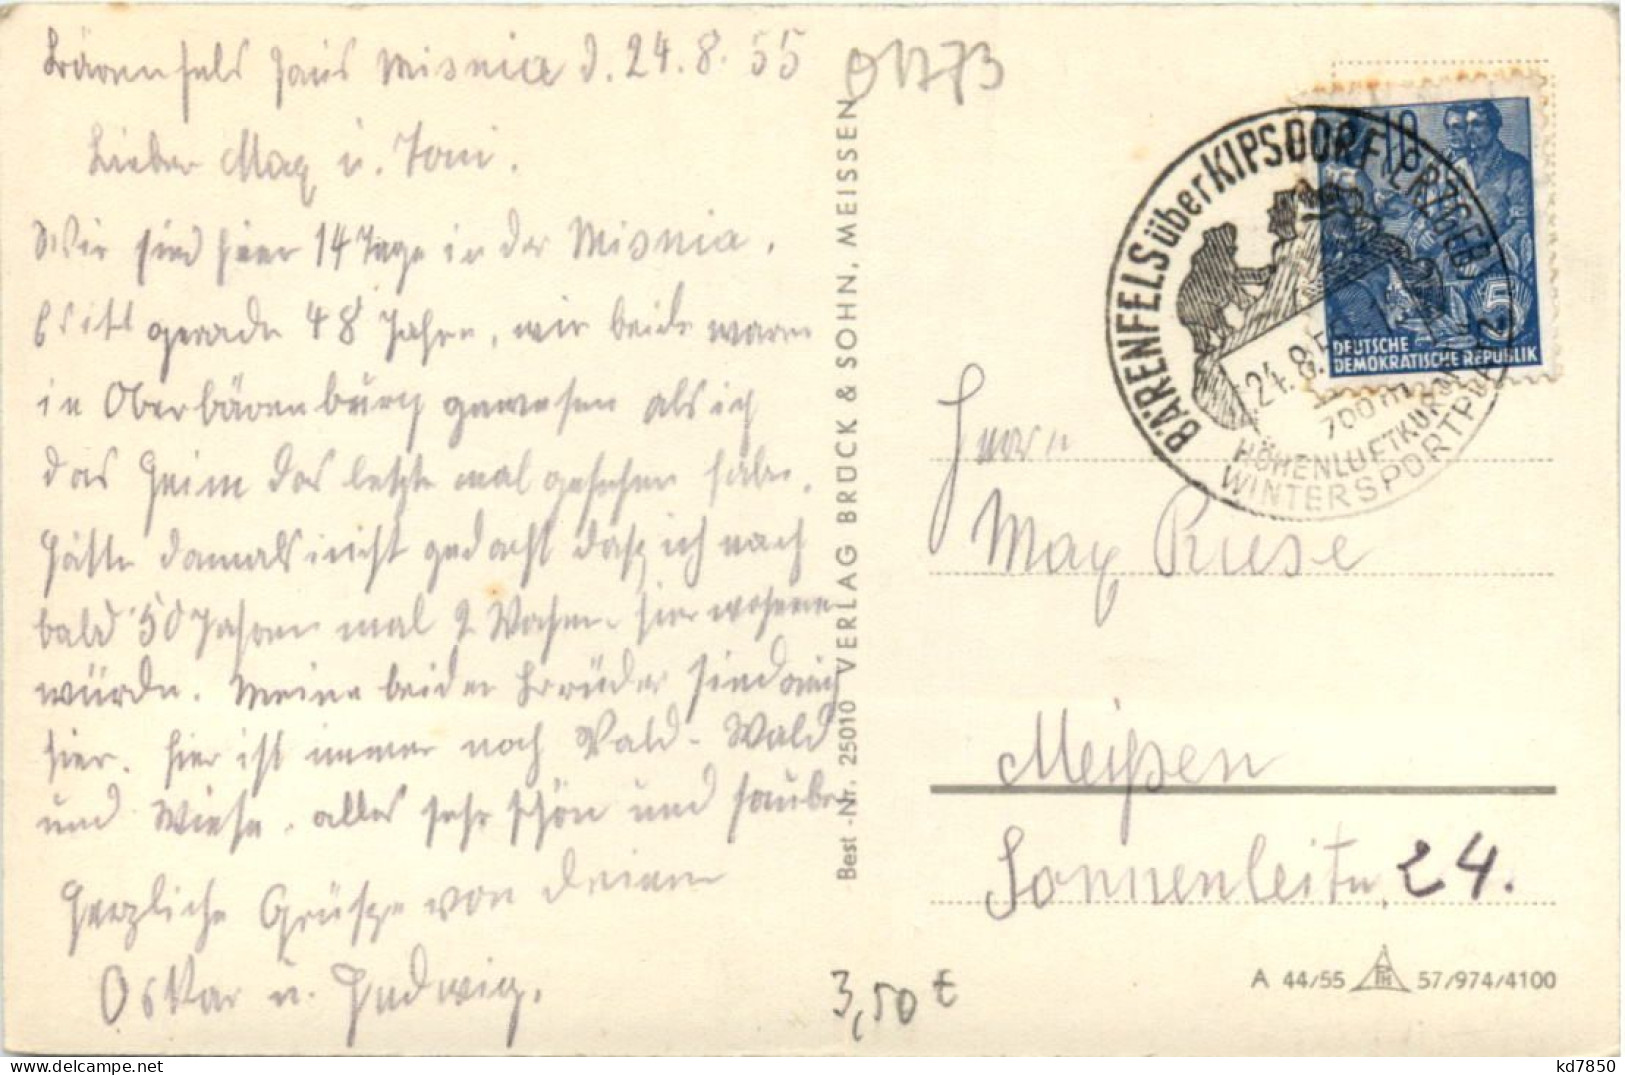 Bärenfels Haus Misnia d. 24.8.55
01773
Lieber Max u. Toni.
Wir sind hier 14 Tage in der Misnia.
Es ist gerade 48 Jahre, wir beide waren
in Oberbärenburg gewesen als ich
das Heim das letzte mal gesehen habe.
Hätte damals nicht gedacht dasz ich nach
bald 50 Jahren mal 2 Wochen hier wohnen
würde. Meine beiden Brüder sind auch
hier. Hier ist immer noch Wald - Wald
und Wiese. alles sehr schön und sauber
Herzliche Grüsze von deinem
Oskar u. Hedwig.
Best.-Nr. 25010 VERLAG BRÜCK & SOHN, MEISSEN
BÄRENFELS über KIPSDORF (ERZGEB.)
24.8.55
700m
HÖHENLUFTKURORT
WINTERSPORTPLATZ
10
5
DEUTSCHE
DEMOKRATISCHE REPUBLIK
Herrn
Max Riese
Meißen
Sonnenleite 24.
3,50 €
A 44/55 57/974/4100
kd7850